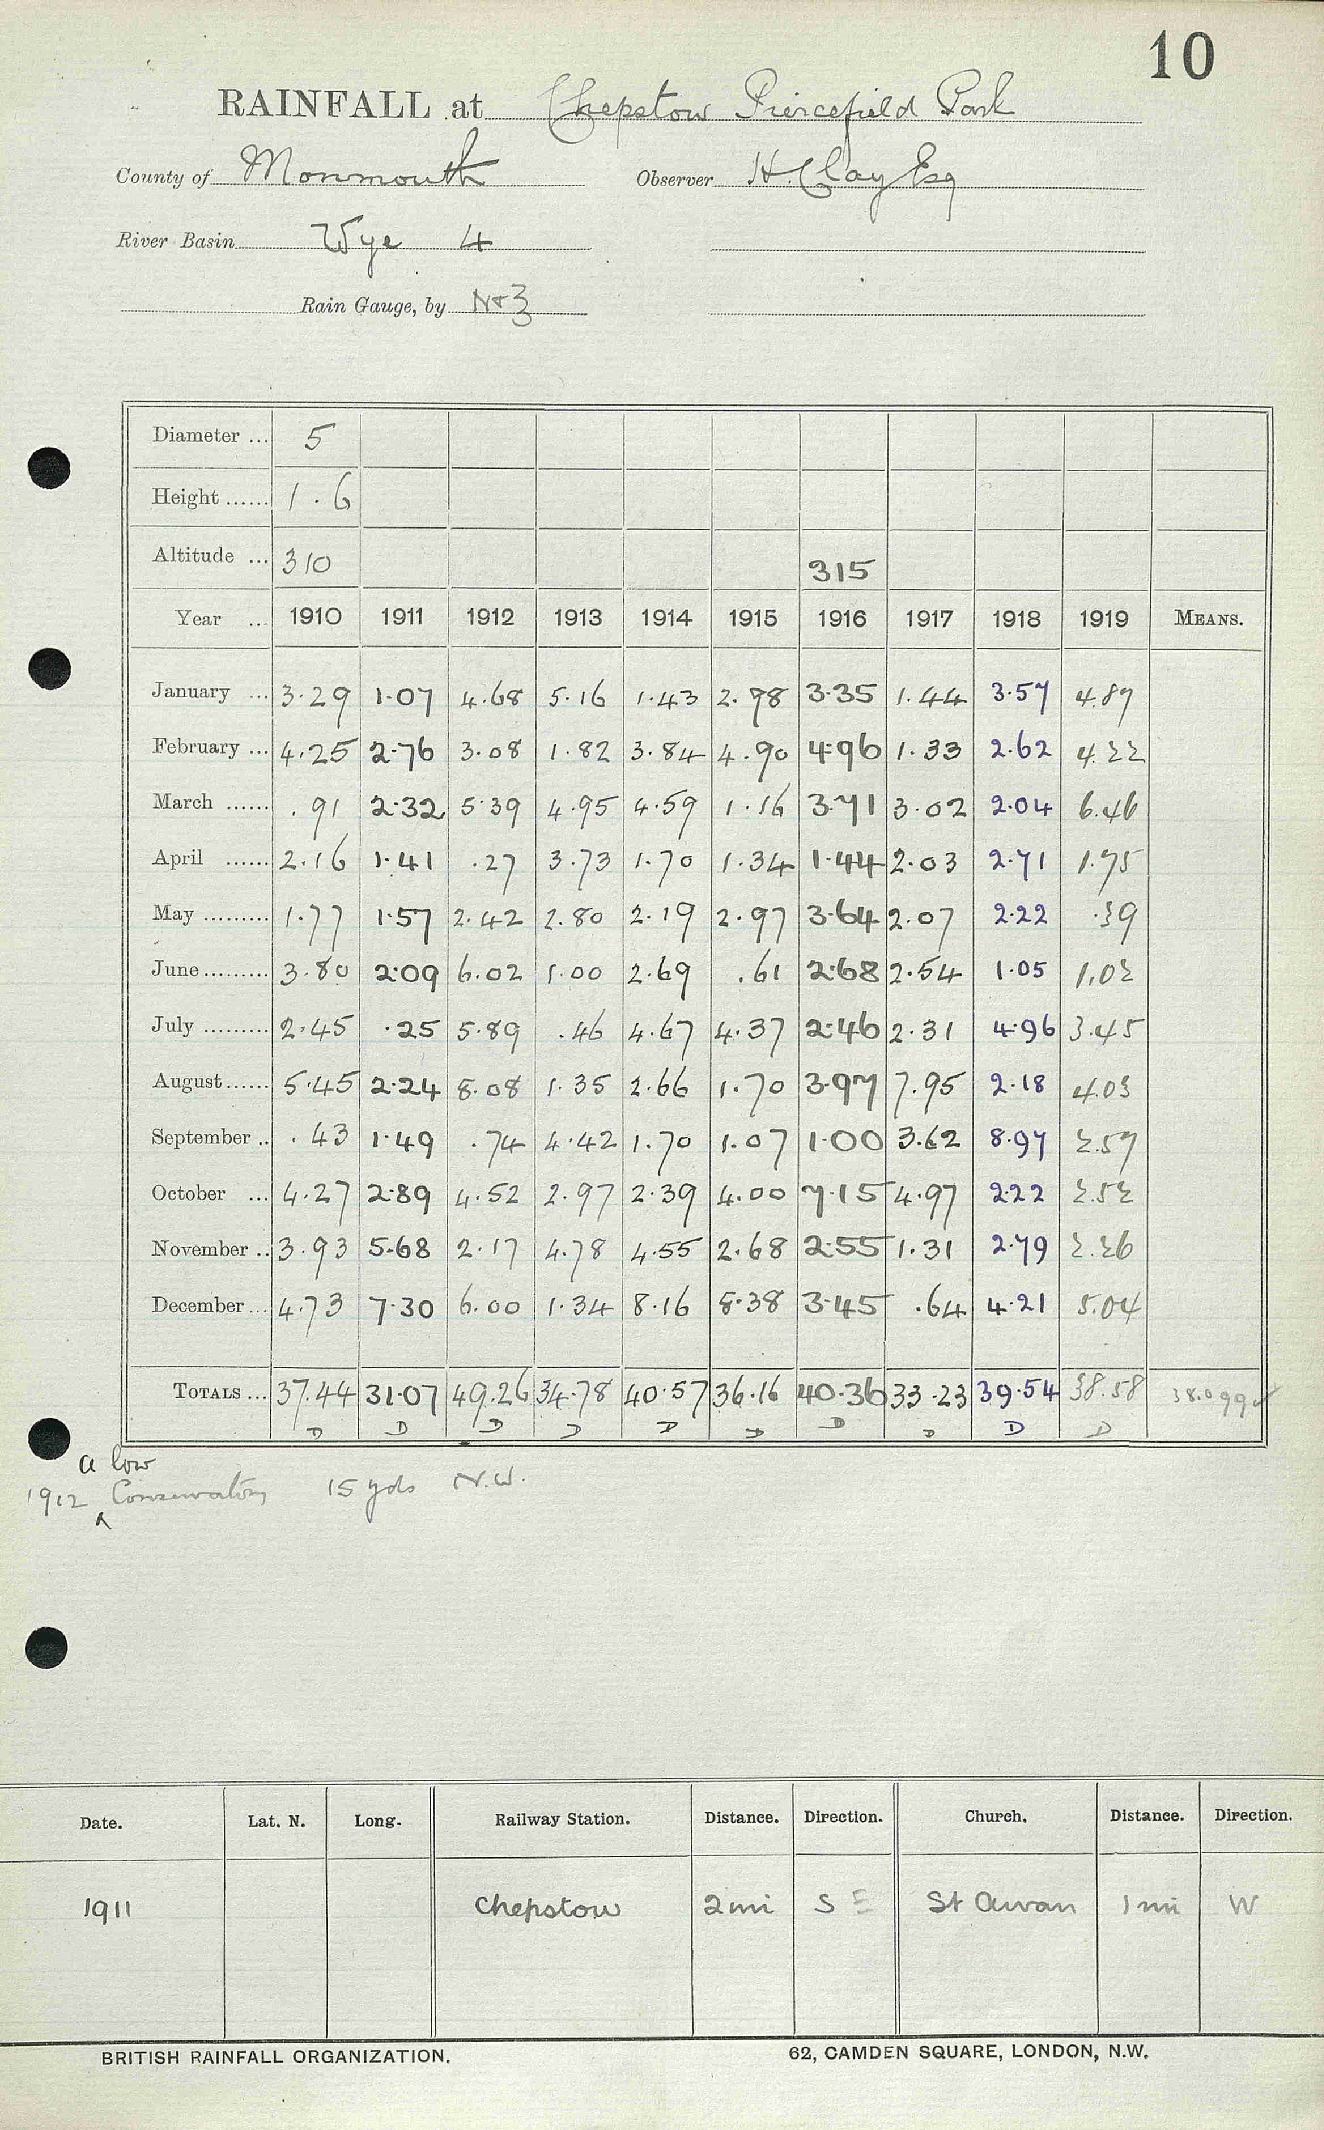 10
RAINFALL at Chepstow Piercefield Park
County of Monmouth Observer H. Clay Esq
River Basin Wye 4
Rain Gauge, by N & Z
Diameter ... 5
Height ...... 1.6
Altitude ... 310 315
Year ... 1910 1911 1912 1913 1914 1915 1916 1917 1918 1919 MEANS.
January ... 3.29 1.07 4.68 5.16 1.43 2.98 3.35 1.44 3.57 4.87
February ... 4.25 2.76 3.08 1.82 3.84 4.90 4.96 1.33 2.62 4.22
March ...... .91 2.32 5.39 4.95 4.59 1.16 3.71 3.02 2.04 6.46
April ...... 2.16 1.41 .27 3.73 1.70 1.34 1.44 2.03 2.71 1.75
May ......... 1.77 1.57 2.42 2.80 2.19 2.97 3.64 2.07 2.22 .39
June ......... 3.80 2.09 6.02 1.00 2.69 .61 2.68 2.54 1.05 1.02
July ......... 2.45 .25 5.89 .46 4.67 4.37 2.46 2.31 4.96 3.45
August ...... 5.45 2.24 8.08 1.35 2.66 1.70 3.97 7.95 2.18 4.03
September .. .43 1.49 .74 4.42 1.70 1.07 1.00 3.62 8.97 2.57
October ... 4.27 2.89 4.52 2.97 2.39 4.00 7.15 4.97 2.22 2.52
November .. 3.93 5.68 2.17 4.78 4.55 2.68 2.55 1.31 2.79 2.26
December ... 4.73 7.30 6.00 1.34 8.16 8.38 3.45 .64 4.21 5.04
TOTALS ... 37.44 31.07 49.26 34.78 40.57 36.16 40.36 33.23 39.54 38.58 38.099
D D D D D D D D D D
a low
1912 ^ Conservatory 15 yds N.W.
Date. Lat. N. Long. Railway Station. Distance. Direction. Church. Distance. Direction.
1911 Chepstow 2 mi S E St Arvan 1 mi W
BRITISH RAINFALL ORGANIZATION. 62, CAMDEN SQUARE, LONDON, N.W.